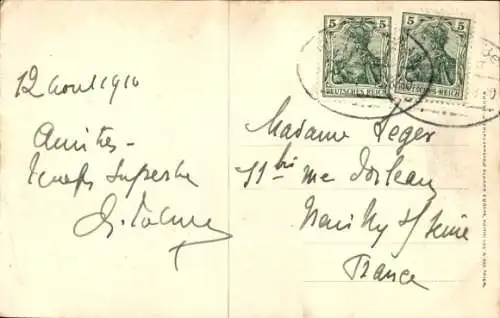 12 Aout 1910
Amitiés
Temps Superbe
5 5
5 5
DEUTSCHES REICH
DEUTSCHES REICH
Madame Leger
11 bis rue d'Orleans
Neuilly s/ Seine
France